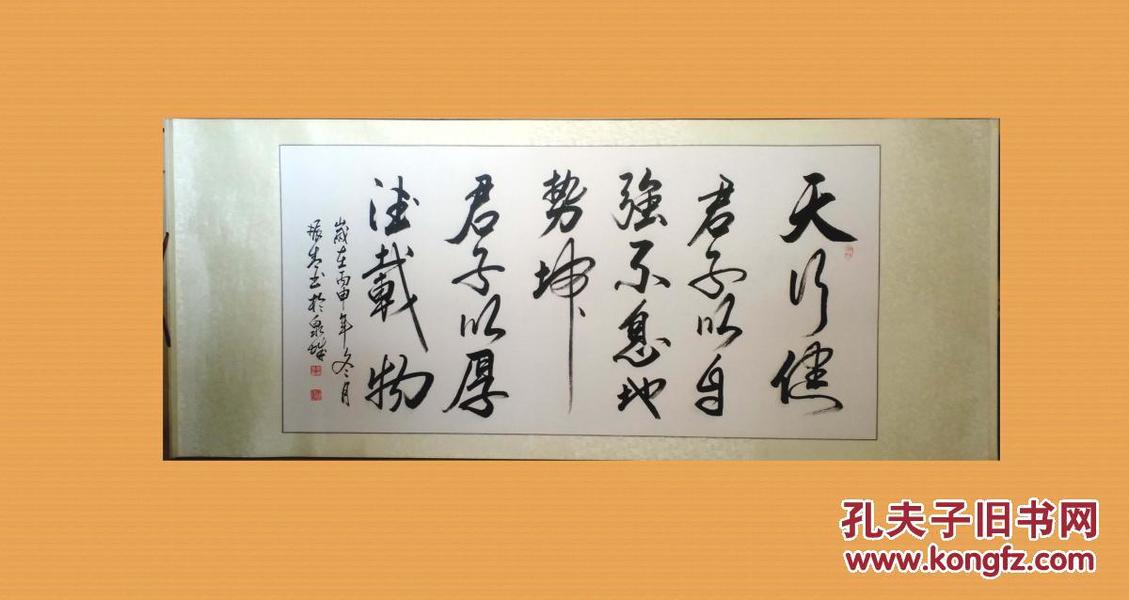 天行健
君子以自
強不息地
势坤
君子以厚
德載物
歲在丙申年冬月
振書於泉城
孔夫子旧书网
www.kongfz.com